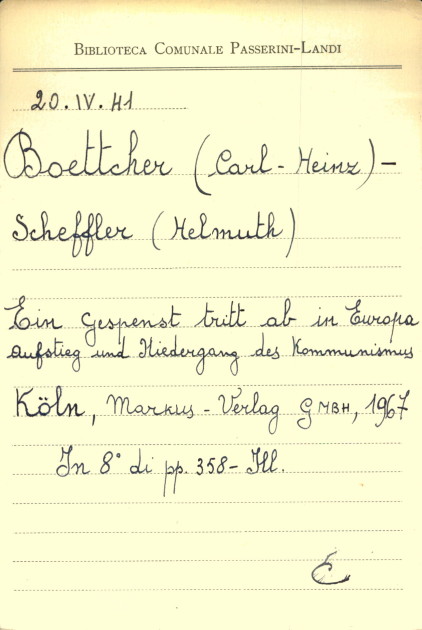 BIBLIOTECA COMUNALE PASSERINI-LANDI
20.IV.41
Boettcher (Carl-Heinz)-
Scheffler (Helmuth)
Ein Gespenst tritt ab in Europa
Aufstieg und Niedergang des Kommunismus
Köln, Markus-Verlag GMBH, 1967
In 8° di pp. 358- Ill.